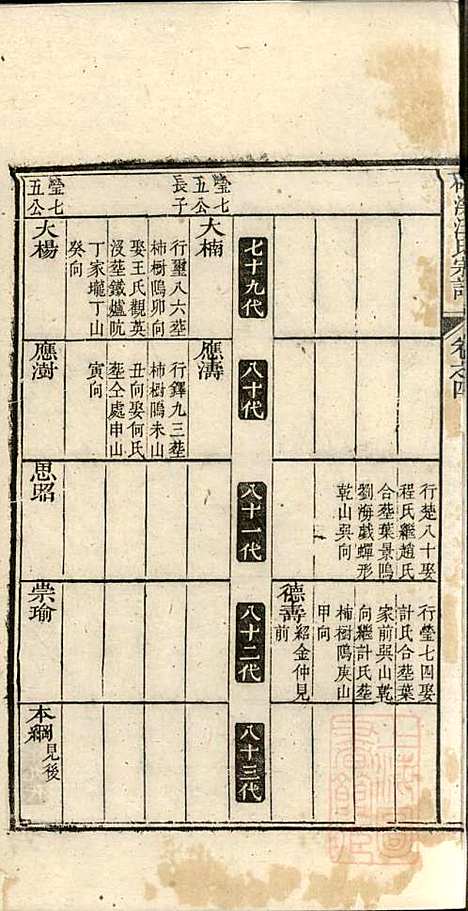 卷之四
行楚八十娶
程氏繼趙氏
合塟葉景塢
劉海戱蟬形
乾山吳向
行瑩七四娶
計氏合塟葉
家前與山乾
向繼計氏塟
柿樹塢庚山
甲向
德壽紹金仲見前
七十九代
八十代
八十一代
八十二代
八十三代
瑩七
五公
長子
大楠
行璽八六塟
柿樹塢卯向
娶王氏觀英
沒塟鐵爐阬
丁家壠丁山
癸向
應濤
行鐸九三塟
柿樹塢未山
丑向娶何氏
塟仝處申山
寅向
瑩七
五公
大楊
應澍
思昭
崇瑜
本綱見後